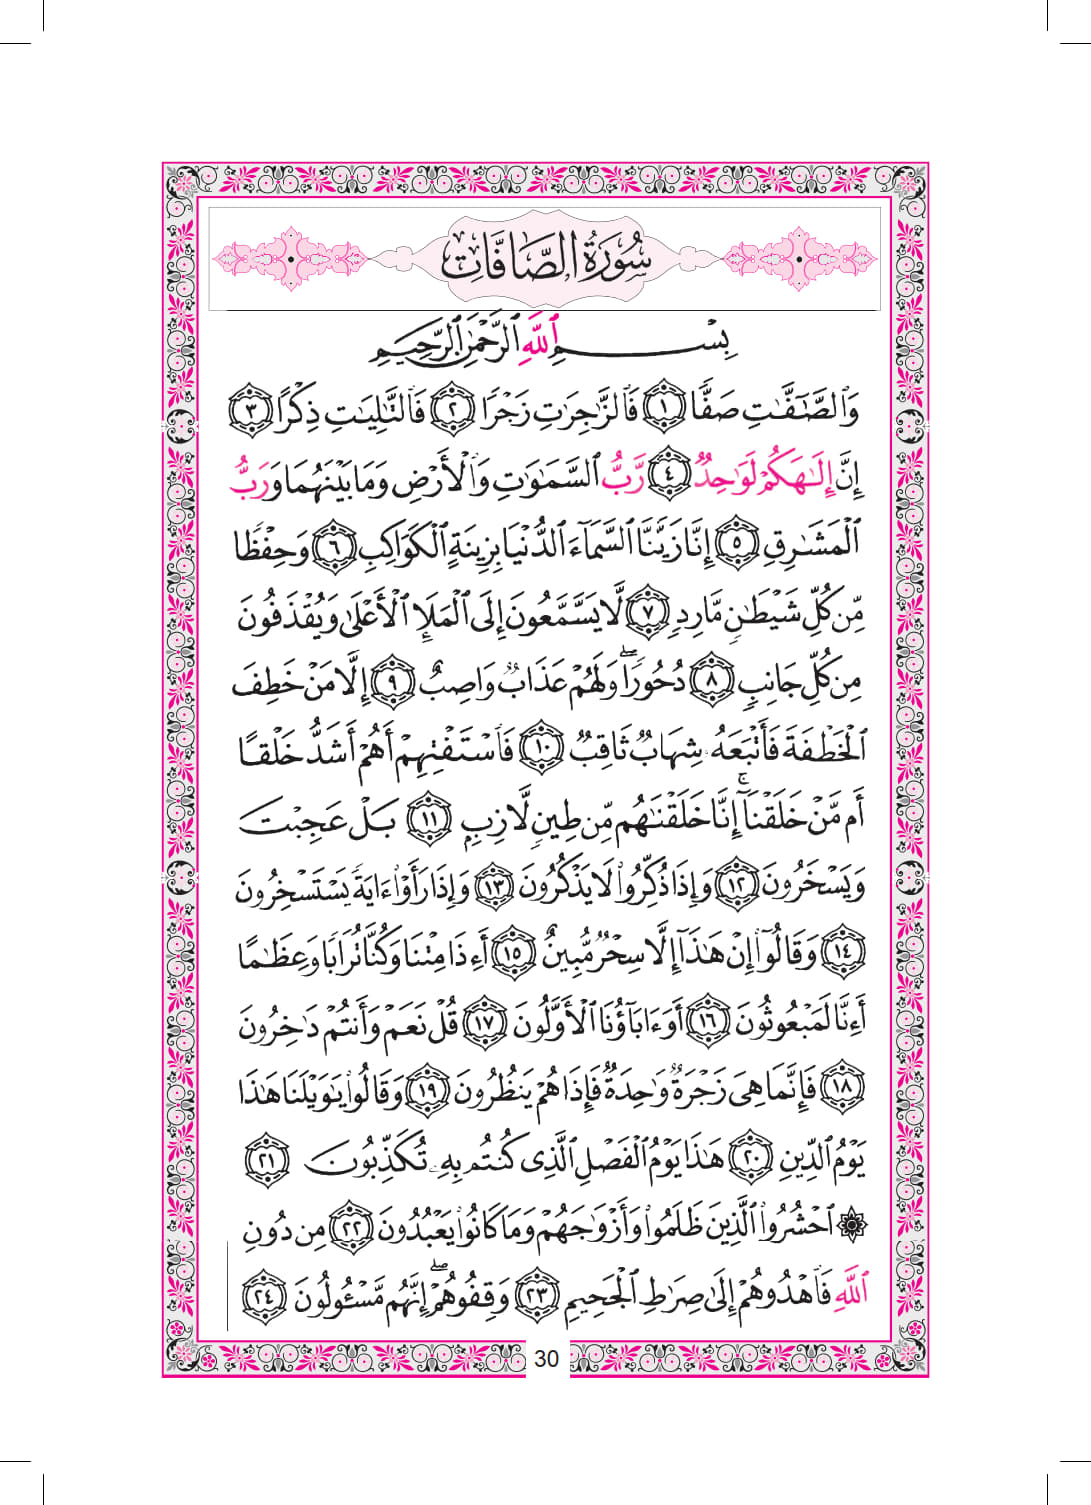 سُورَةُ الصَّافَّاتِ
بِسْمِ ٱللَّهِ ٱلرَّحْمَٰنِ ٱلرَّحِيمِ
وَٱلصَّٰٓفَّٰتِ صَفًّا ١ فَٱلزَّٰجِرَٰتِ زَجْرًا ٢ فَٱلتَّٰلِيَٰتِ ذِكْرًا ٣
إِنَّ إِلَٰهَكُمْ لَوَٰحِدٌ ٤ رَّبُّ ٱلسَّمَٰوَٰتِ وَٱلْأَرْضِ وَمَا بَيْنَهُمَا وَرَبُّ
ٱلْمَشَٰرِقِ ٥ إِنَّا زَيَّنَّا ٱلسَّمَآءَ ٱلدُّنْيَا بِزِينَةٍ ٱلْكَوَاكِبِ ٦ وَحِفْظًا
مِّن كُلِّ شَيْطَٰنٍ مَّارِدٍ ٧ لَّا يَسَّمَّعُونَ إِلَى ٱلْمَلَإِ ٱلْأَعْلَىٰ وَيُقْذَفُونَ
مِن كُلِّ جَانِبٍ ٨ دُحُورًا ۖ وَلَهُمْ عَذَابٌ وَاصِبٌ ٩ إِلَّا مَنْ خَطِفَ
ٱلْخَطْفَةَ فَأَتْبَعَهُۥ شِهَابٌ ثَاقِبٌ ١٠ فَٱسْتَفْتِهِمْ أَهُمْ أَشَدُّ خَلْقًا
أَم مَّنْ خَلَقْنَآ ۚ إِنَّا خَلَقْنَٰهُم مِّن طِينٍ لَّازِبٍ ١١ بَلْ عَجِبْتَ
وَيَسْخَرُونَ ١٢ وَإِذَا ذُكِّرُوا۟ لَا يَذْكُرُونَ ١٣ وَإِذَا رَأَوْا۟ ءَايَةً يَسْتَسْخِرُونَ
١٤ وَقَالُوٓا۟ إِنْ هَٰذَآ إِلَّا سِحْرٌ مُّبِينٌ ١٥ أَءِذَا مِتْنَا وَكُنَّا تُرَابًا وَعِظَٰمًا
أَءِنَّا لَمَبْعُوثُونَ ١٦ أَوَءَابَآؤُنَا ٱلْأَوَّلُونَ ١٧ قُلْ نَعَمْ وَأَنتُمْ دَٰخِرُونَ
١٨ فَإِنَّمَا هِىَ زَجْرَةٌ وَٰحِدَةٌ فَإِذَا هُمْ يَنظُرُونَ ١٩ وَقَالُوا۟ يَٰوَيْلَنَا هَٰذَا
يَوْمُ ٱلدِّينِ ٢٠ هَٰذَا يَوْمُ ٱلْفَصْلِ ٱلَّذِى كُنتُم بِهِۦ تُكَذِّبُونَ ٢١
۞ ٱحْشُرُوا۟ ٱلَّذِينَ ظَلَمُوا۟ وَأَزْوَٰجَهُمْ وَمَا كَانُوا۟ يَعْبُدُونَ ٢٢ مِن دُونِ
ٱللَّهِ فَٱهْدُوهُمْ إِلَىٰ صِرَٰطِ ٱلْجَحِيمِ ٢٣ وَقِفُوهُمْ ۖ إِنَّهُم مَّسْـُٔولُونَ ٢٤
30